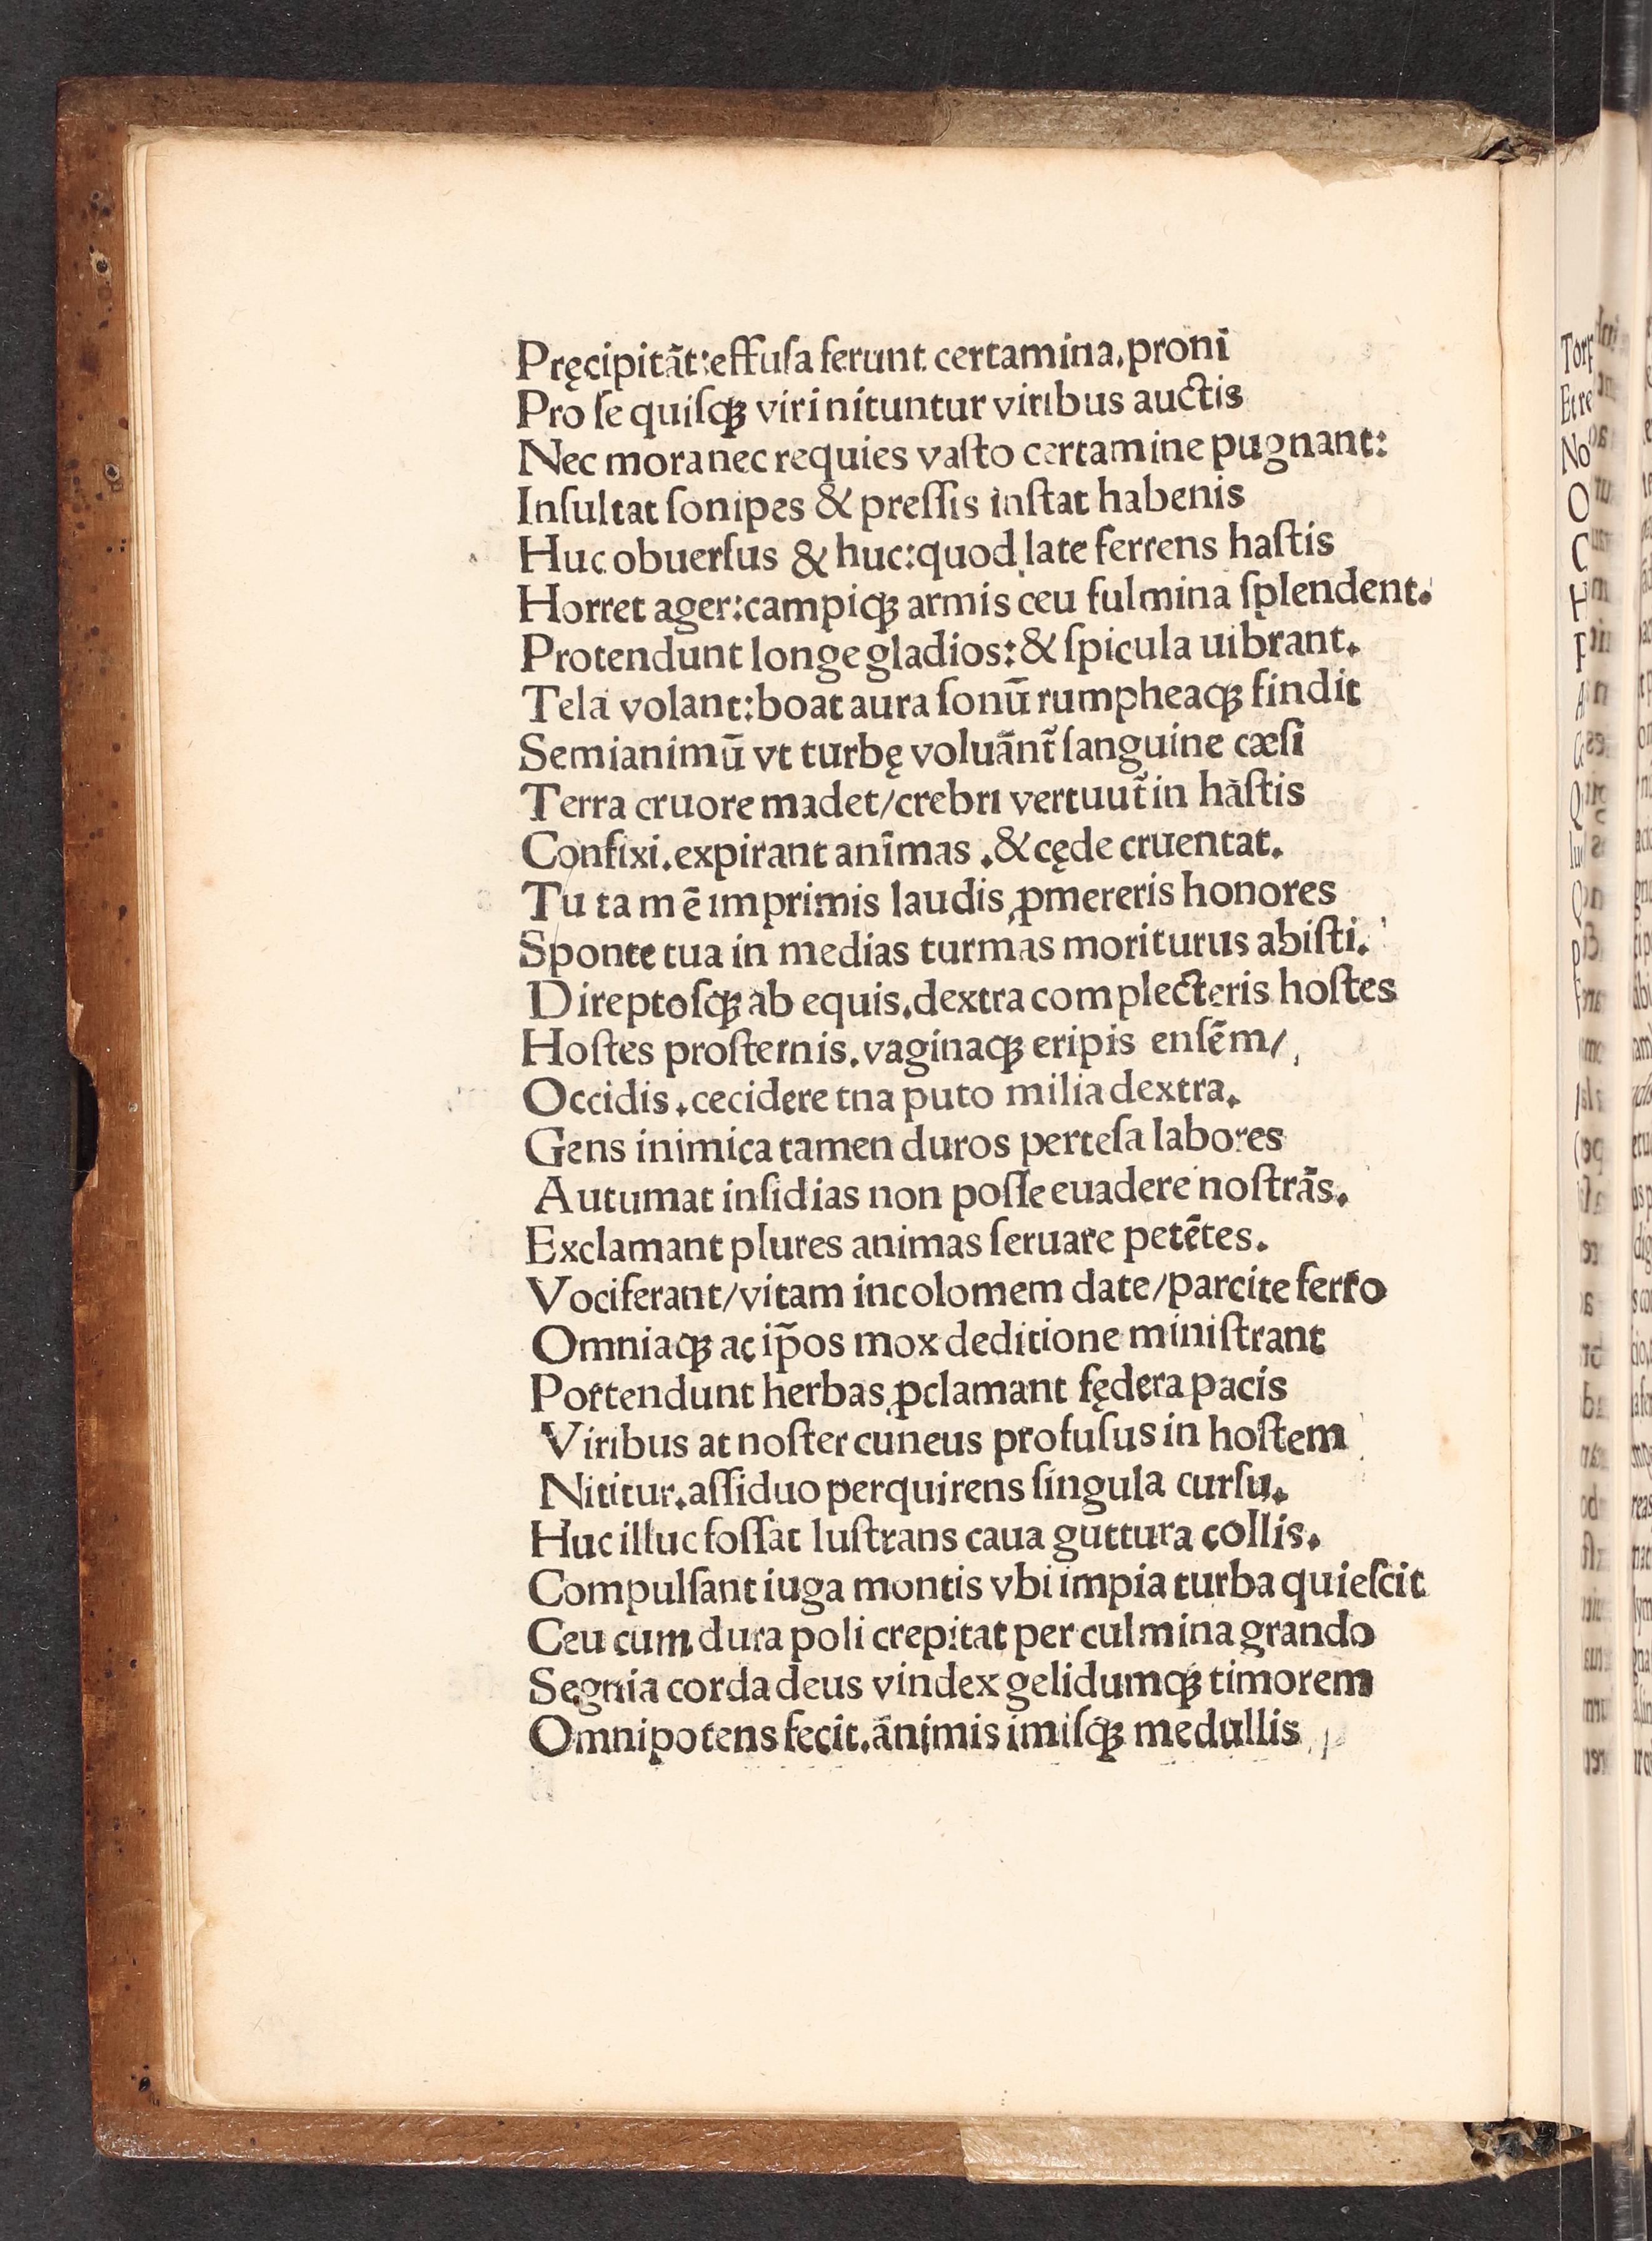 Pręcipitāt:effuſa ferunt certamina.pronī
Pro ſe quiſqꝫ viri nituntur viribus auctis
Nec mora nec requies vaſto certamine pugnant:
Inſultat ſonipes & preſſis inſtat habenis
Huc obuerſus & huc:quod late ferrens haſtis
Horret ager:campiqꝫ armis ceu fulmina ſplendent.
Protendunt longe gladios:& ſpicula uibrant.
Tela volant:boat aura ſonū rumpheaqꝫ findit
Semianimū vt turbę voluānt̃ ſanguine cæſi
Terra cruore madet/crebri vertuut̃ in hāſtis
Confixi.expirant anīmas .& cęde cruentat.
Tu tamē imprimis laudis ꝓmereris honores
Sponte tua in medias turmas moriturus abiſti.
Direptoſqꝫ ab equis.dextra complecteris hoſtes
Hoſtes proſternis.vaginaqꝫ eripis enſēm/
Occidis.cecidere tna puto milia dextra.
Gens inimica tamen duros perteſa labores
Autumat inſidias non poſſe euadere noſtrās.
Exclamant plures animas ſeruare petētes.
Vociferant/vitam incolomem date/parcite ferro
Omniaqꝫ ac ip̄os mox deditione miniſtrant
Portendunt herbas ꝓclamant fędera pacis
Viribus at noſter cuneus profuſus in hoſtem
Nititur.aſſiduo perquirens ſingula curſu.
Huc illuc foſſat luſtrans caua guttura collis.
Compulſant iuga montis vbi impia turba quieſcit
Ceu cum dura poli crepitat per culmina grando
Segnia corda deus vindex gelidumqꝫ timorem
Omnipotens fecit.ānimis imiſqꝫ medullis